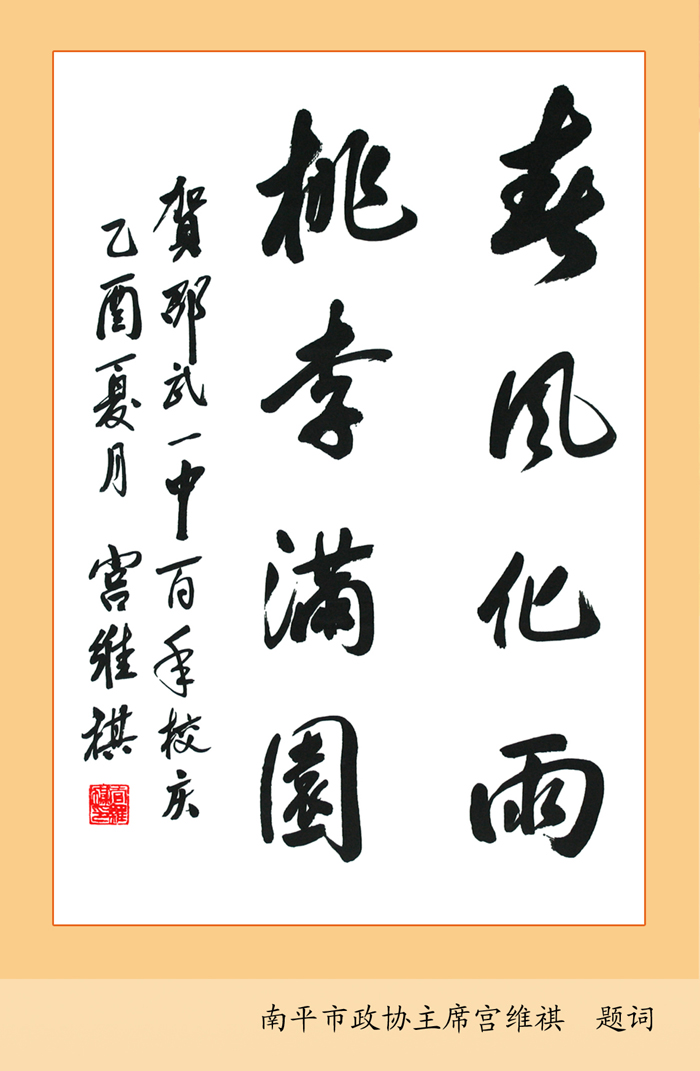 春风化雨
桃李满園
賀邵武一中百年校庆
乙酉夏月 宫维祺
南平市政协主席宫维祺 题词